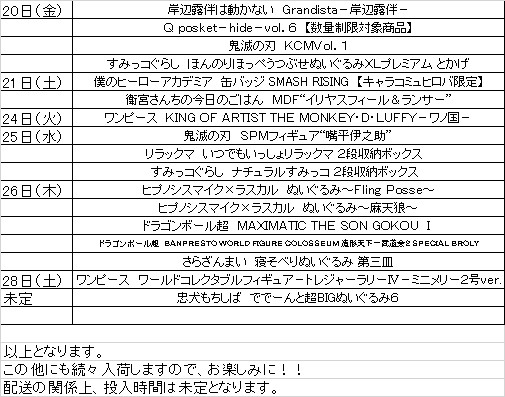 20日(金) 岸辺露伴は動かない Grandista－岸辺露伴－
Q posket－hide－vol.6【数量制限対象商品】
鬼滅の刃 KCMVol.1
すみっコぐらし ほんのりほっぺうつぶせぬいぐるみXLプレミアム とかげ
21日(土) 僕のヒーローアカデミア 缶バッジSMASH RISING【キャラコミュヒロバ限定】
衛宮さんちの今日のごはん MDF“イリヤスフィール＆ランサー”
24日(火) ワンピース KING OF ARTIST THE MONKEY・D・LUFFY－ワノ国－
25日(水) 鬼滅の刃 SPMフィギュア“嘴平伊之助”
リラックマ いつでもいっしょリラックマ 2段収納ボックス
すみっコぐらし ナチュラルすみっコ 2段収納ボックス
26日(木) ヒプノシスマイク×ラスカル ぬいぐるみ～Fling Posse～
ヒプノシスマイク×ラスカル ぬいぐるみ～麻天狼～
ドラゴンボール超 MAXIMATIC THE SON GOKOU Ⅰ
ドラゴンボール超 BANPRESTO WORLD FIGURE COLOSSEUM 造形天下一武道会2 SPECIAL BROLY
さらざんまい 寝そべりぬいぐるみ 第三皿
28日(土) ワンピース ワールドコレクタブルフィギュアートレジャーラリーⅣ－ミニメリー2号ver.
未定 忠犬もちしば ででーんと超BIGぬいぐるみ6
以上となります。
この他にも続々入荷しますので、お楽しみに！！
配送の関係上、投入時間は未定となります。